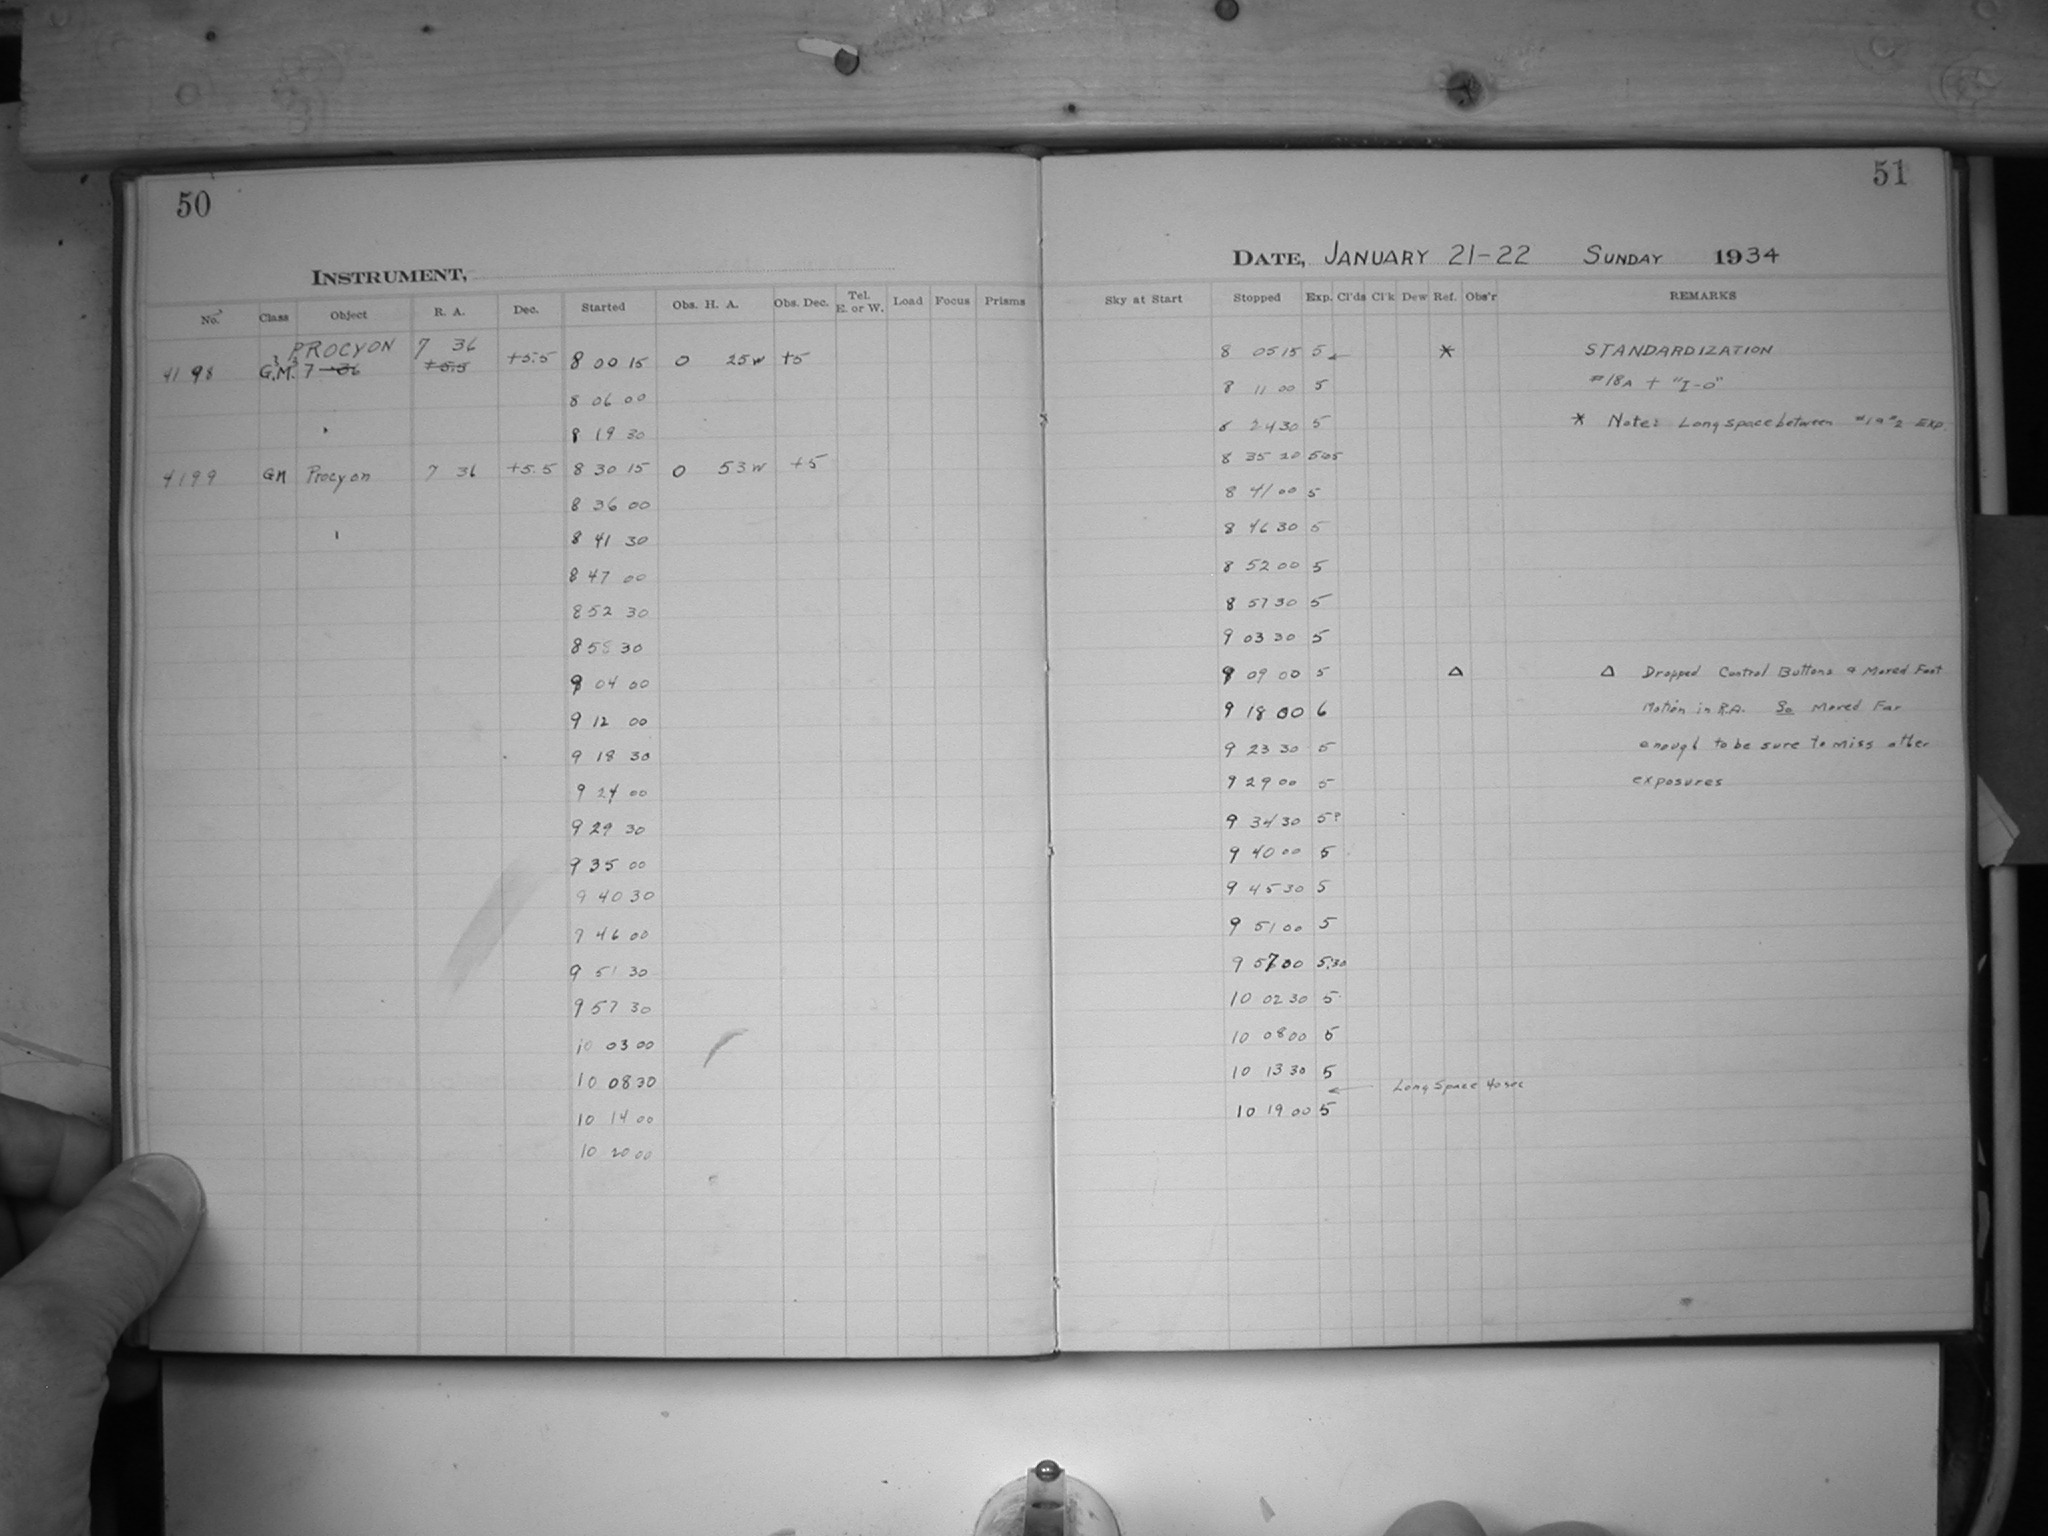 50
INSTRUMENT,
No. Class Object R. A. Dec. Started Obs. H. A. Obs. Dec. Tel. E. or W. Load Focus Prisms
PROCYON 7 36
4198 G.M. 7 36 +5.5 +5.5 8 00 15 0 25W +5
8 06 00
8 19 30
4199 GM Procyon 7 36 +5.5 8 30 15 0 53W +5
8 36 00
8 41 30
8 47 00
8 52 30
8 58 30
9 04 00
9 12 00
9 18 30
9 24 00
9 29 30
9 35 00
9 40 30
9 46 00
9 51 30
9 57 30
10 03 00
10 08 30
10 14 00
10 20 00
51
DATE, JANUARY 21-22 SUNDAY 1934
Sky at Start Stopped Exp. Cl'ds Cl'k Dew Ref. Obs'r REMARKS
8 05 15 5 * STANDARDIZATION
8 11 00 5 #18A + "I-O"
8 24 30 5 * Note: Long space between #1 & #2 Exp.
8 35 20 5:05
8 41 00 5
8 46 30 5
8 52 00 5
8 57 30 5
9 03 30 5
9 09 00 5 Δ Δ Dropped Control Buttons & Moved Fast
9 18 00 6 Motion in R.A. So Moved Far
9 23 30 5 enough to be sure to miss other
9 29 00 5 exposures
9 34 30 5?
9 40 00 5
9 45 30 5
9 51 00 5
9 57 00 5:30
10 02 30 5
10 08 00 5
10 13 30 5
← Long Space 40 sec
10 19 00 5